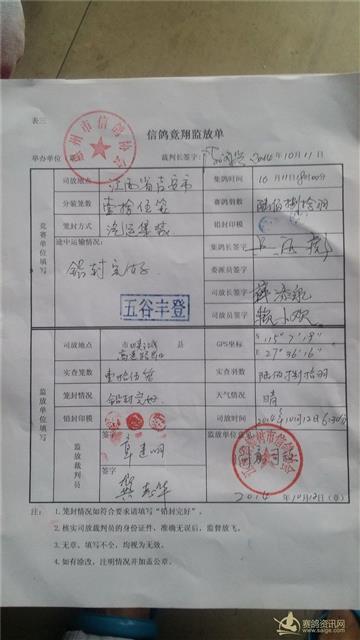 表三
信鸽竞翔监放单
举办单位(章) 裁判长签字: 2014年10月11日
竞赛单位填写
司放地点 江西省吉安市 集鸽时间 10月11日18时00分
分装笼数 壹拾伍笼 赛鸽羽数 陆佰捌拾羽
笼封方式 汽运集装 铅封印模
途中运输情况: 集鸽长签字
铅封完好 委派员签字
司放长签字
五谷丰登 司放员签字
监放单位填写
司放地点 市 县 GPS坐标 E 115°7′19″
高速路 N 27°36′16″
实查笼数 壹拾伍笼 实查羽数 陆佰捌拾羽
笼封情况 铅封完好 天气情况 晴
铅封印模 司放时间 2014年10月12日6:30分
监放裁判员 签字 监放单位意见
签字
2014年10月12日(章)
注: 1.笼封情况如符合要求请填写“铅封完好”。
2.核实司放裁判员的身份证件,准确无误后,监督放飞。
3.无章、填写不全,均视为无效。
4.如有涂改,注明情况并加盖公章。
赛鸽资讯网
www.saige.com